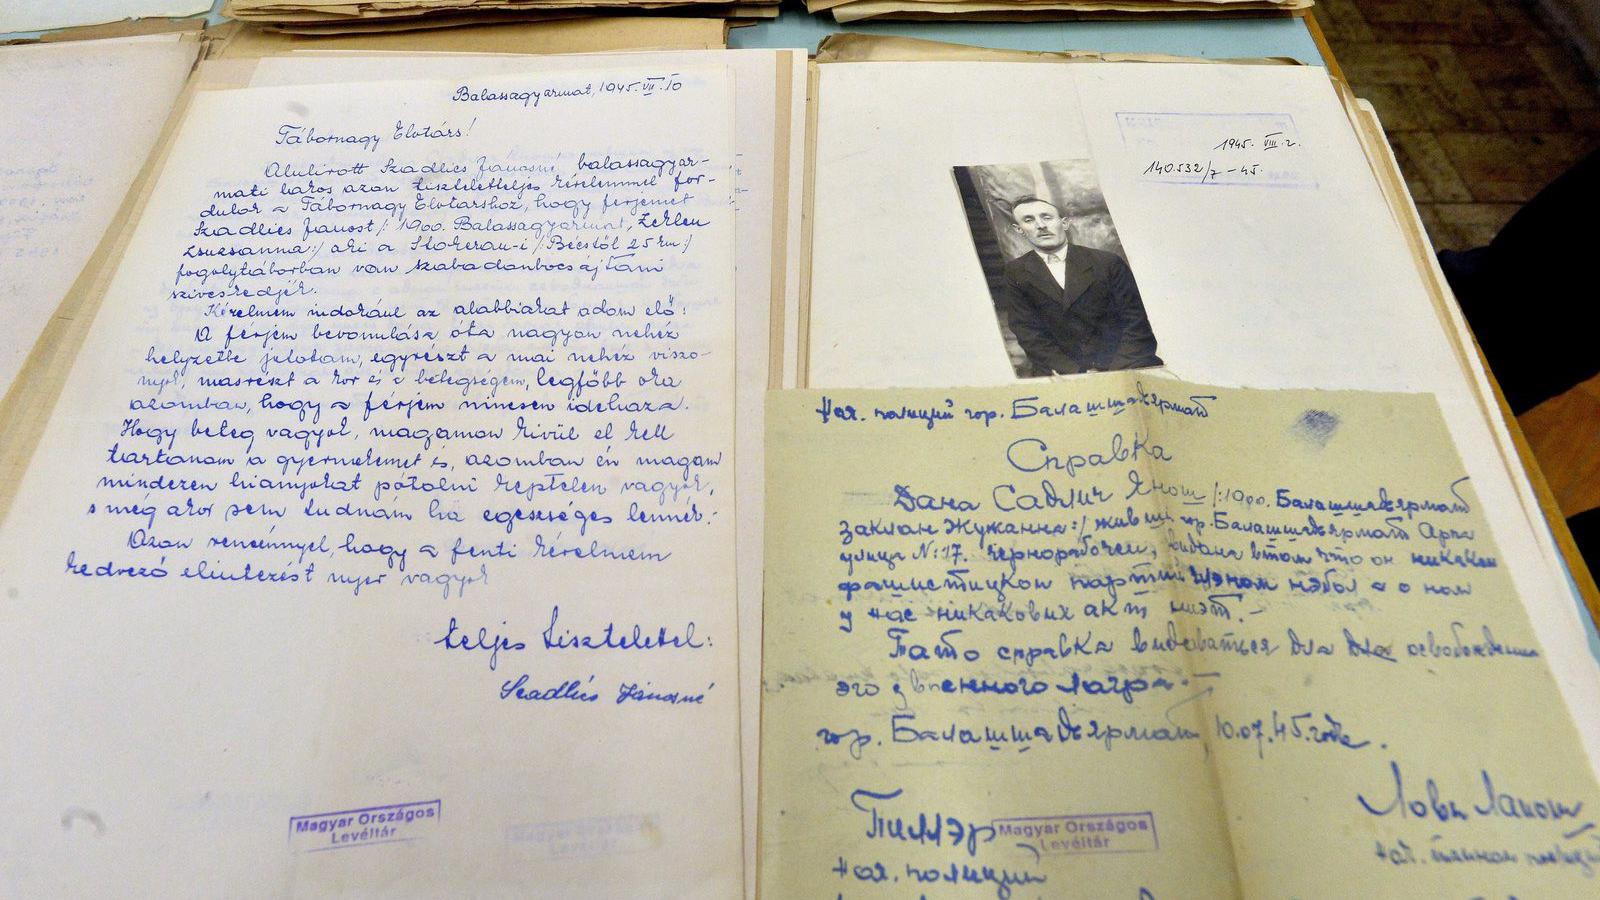 Balassagyarmat, 1945. VII. 10
Tábornagy Elvtárs!
Alulirott Szadlics Jánosné balassagyar-
mati lakos azon tiszteletteljes kérelemmel for-
dulok a Tábornagy Elvtárshoz, hogy férjemet
Szadlics Jánost /: 1900. Balassagyarmat, Zaklan
Zsuzsanna :/ aki a Stokerau-i /: Bécstől 25 km :/
fogolytáborban van szabadonbocsájtani
szíveskedjék.
Kérelmem indokául az alabbiakat adom elő:
A férjem bevonulása óta nagyon nehéz
helyzetbe jutottam, egyrészt a mai nehéz viszo-
nyok, másrészt a kor és a betegségem, legfőbb oka
azomban, hogy a férjem nincsen idehaza.
Hogy beteg vagyok, magamon kivül el kell
tartanom a gyermekemet is, azomban én magam
mindezen hiányokat pótolni képtelen vagyok,
s még akor sem tudnám ha egeszséges lennék.-
Azon reménnyel, hogy a fenti kérelmem
kedvező elintezést nyer vagyok
teljes tisztelettel:
Szadlics Jánosné
Magyar Országos
Levéltár
1945. VIII. 2.
140.532/7 - 45.
Нач. полиций гор. Балашшадярмат
Справка
Дана Садлич Янош /: 1900. Балашшадярмат
Заклан Жужанна :/ живш гор. Балашшадярмат Арпа
улица N: 17. чернорабочем, видана втом что он никакои
фашистицкои партии члэном нэбол а о ном
у нас никакових акт ниэт.-
Пато справка видаваться для для освобождения
эго з военного лагра.-
гор. Балашшадярмат, 10.07.45. годе.
Пиллэр
нач. полиций
Magyar Országos
Levéltár
Лови Лапош
нач.